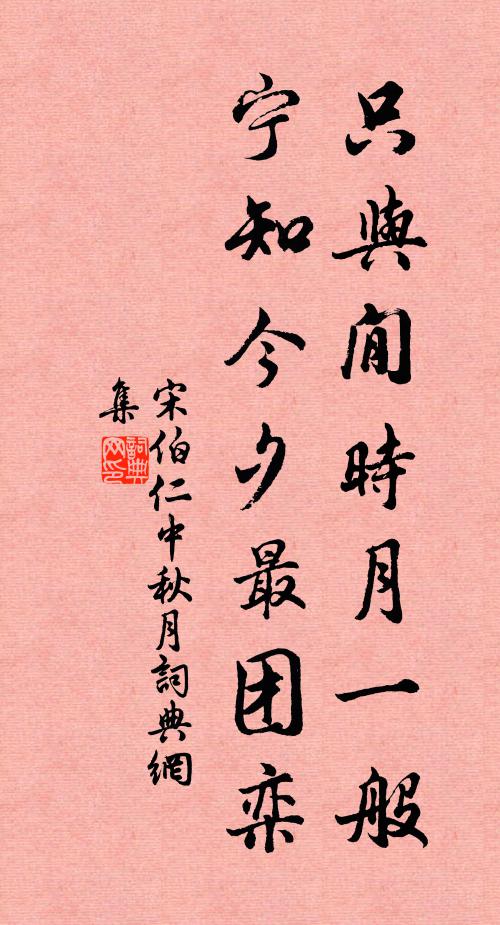 只與閒時月一般
宁知今夕最团栾
宋伯仁中秋月詞典網
集
詞典网印